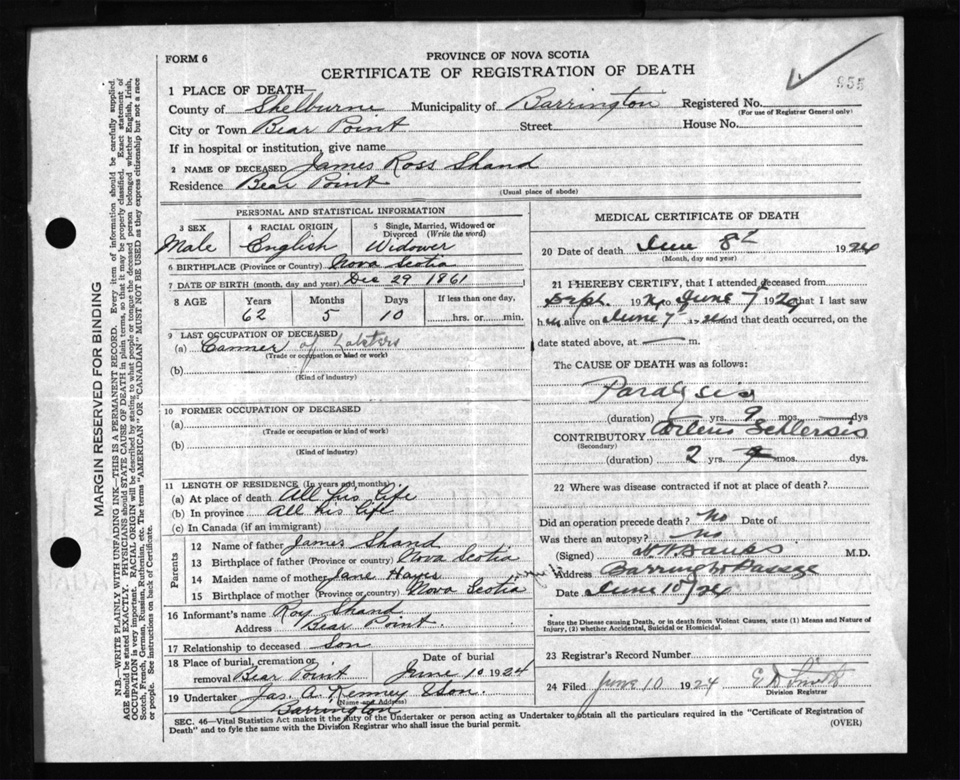 FORM 6
PROVINCE OF NOVA SCOTIA
CERTIFICATE OF REGISTRATION OF DEATH
955
1 PLACE OF DEATH—
County of Shelburne Municipality of Barrington Registered No.
(For use of Registrar General only)
City or Town Bear Point Street House No.
If in hospital or institution, give name
2 NAME OF DECEASED James Ross Shand
Residence Bear Point
(Usual place of abode)
PERSONAL AND STATISTICAL INFORMATION
3 SEX 4 RACIAL ORIGIN 5 Single, Married, Widowed or Divorced (Write the word)
Male English Widower
6 BIRTHPLACE (Province or Country) Nova Scotia
7 DATE OF BIRTH (month, day and year) Dec 29 1861
8 AGE Years Months Days If less than one day,
62 5 10 ....hrs. or ....min.
9 LAST OCCUPATION OF DECEASED
(a) Canner of Lobsters
(Trade or occupation or kind of work)
(b)
(Kind of industry)
10 FORMER OCCUPATION OF DECEASED
(a)
(Trade or occupation or kind of work)
(b)
(Kind of industry)
11 LENGTH OF RESIDENCE (In years and months)
(a) At place of death All his life
(b) In province All his life
(c) In Canada (if an immigrant)
Parents
12 Name of father James Shand
13 Birthplace of father (Province or country) Nova Scotia
14 Maiden name of mother Jane
15 Birthplace of mother (Province or country) Nova Scotia
16 Informant's name Roy Shand
Address Bear Point
17 Relationship to deceased Son
18 Place of burial, cremation or removal Bear Point Date of burial June 10 1924
19 Undertaker Jas. A. Kenney & Son.
(Name and Address)
Barrington
MEDICAL CERTIFICATE OF DEATH
20 Date of death June 8th 1924
(Month, day and year)
21 I HEREBY CERTIFY, that I attended deceased from
Sept. 192 to June 7 1924 that I last saw
h alive on June 7 and that death occurred, on the
date stated above, at — m.
The CAUSE OF DEATH was as follows:
Paralysis
(duration) yrs. 9 mos. dys
CONTRIBUTORY
(Secondary)
(duration) 2 yrs. mos. dys.
22 Where was disease contracted if not at place of death?
Did an operation precede death? No Date of
Was there an autopsy? no
(Signed) Banks M.D.
Address Barrington Passage
Date June 10/24
State the Disease causing Death, or in death from Violent Causes, state (1) Means and Nature of Injury, (2) whether Accidental, Suicidal or Homicidal.
23 Registrar's Record Number
24 Filed June 10 1924 E D Smith
Division Registrar
SEC. 46—Vital Statistics Act makes it the duty of the Undertaker or person acting as Undertaker to obtain all the particulars required in the "Certificate of Registration of
Death" and to fyle the same with the Division Registrar who shall issue the burial permit. (OVER)
MARGIN RESERVED FOR BINDING
N.B.—WRITE PLAINLY WITH UNFADING INK—THIS IS A PERMANENT RECORD. Every item of information should be carefully supplied.
AGE should be stated EXACTLY. PHYSICIANS should STATE CAUSE OF DEATH in plain terms, so that it may be properly classified. Exact statement of
OCCUPATION is very important. RACIAL ORIGIN will be described by stating to what people or tongue the deceased person belonged whether English, Irish,
Scotch, French, German, Russian, Ruthenian, etc. The terms "AMERICAN" OR "CANADIAN" MUST NOT BE USED as they express citizenship but not a race
or people. See instructions on back of Certificate.